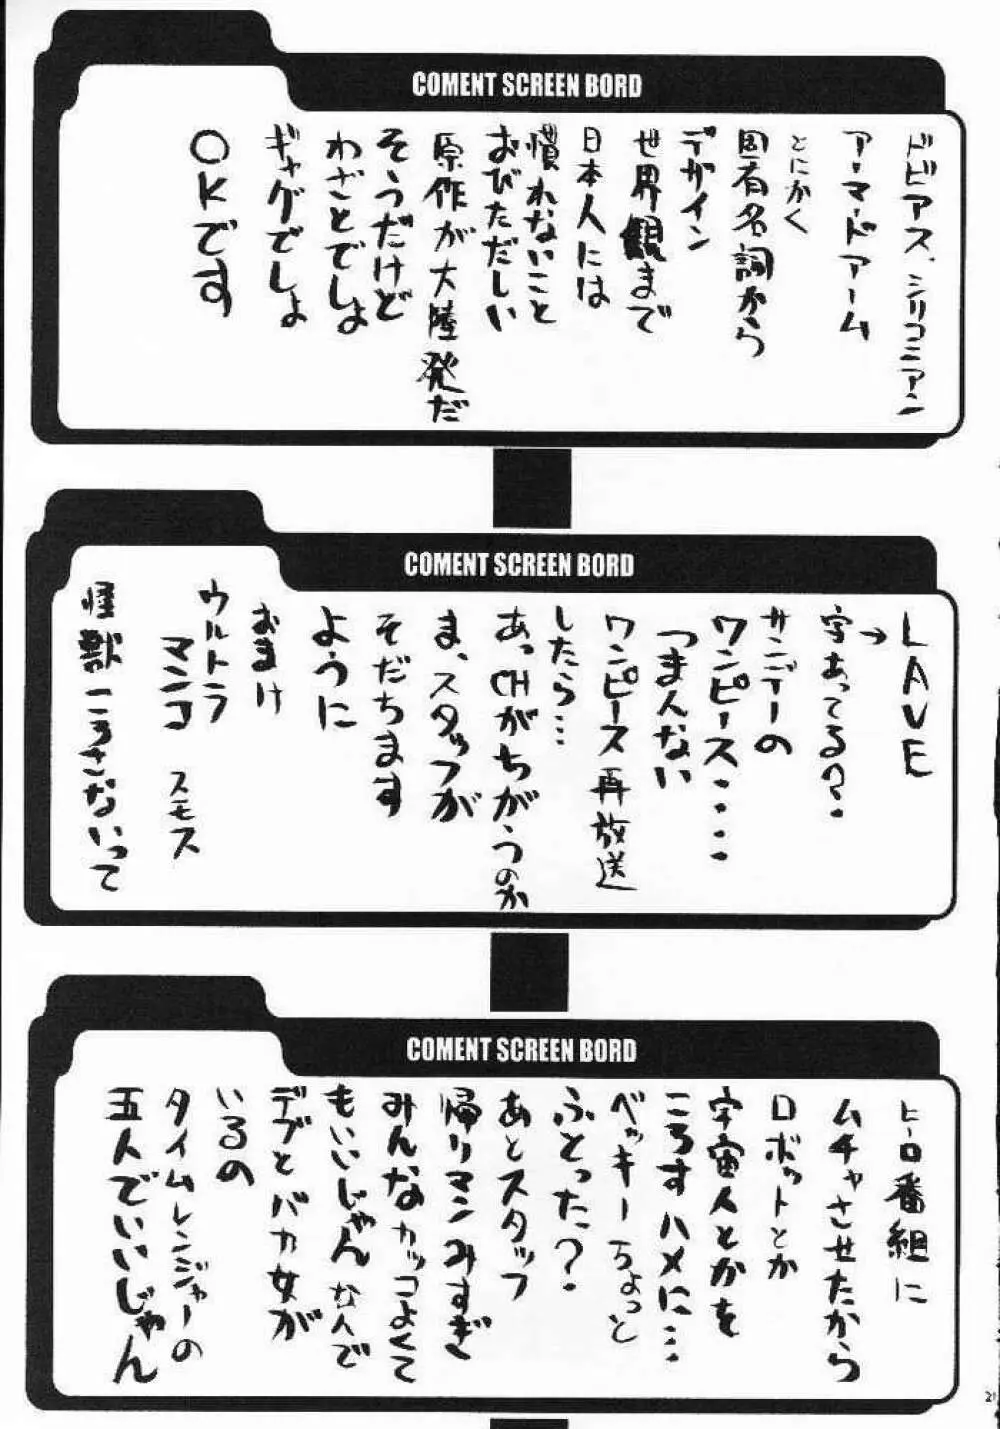 COMENT SCREEN BORD
ドビアス、シリコニアン
アーマードアーム
とにかく
固有名詞から
デザイン
世界観まで
日本人には
慣れないこと
おびただしい
原作が大陸発だ
そうだけど
わざとでしょ
ギャグでしょ
OKです
COMENT SCREEN BORD
LAVE
→字あってる?
サンデーの
ワンピース・・・・
つまんない
ワンピース再放送
したら…
あっCHがちがうのか
ま、スタッフが
そだちます
ように
おまけ
ウルトラ
マンコスモス
怪獣ころさないって
COMENT SCREEN BORD
ヒーロ番組に
ムチャさせたから
ロボットとか
宇宙人とかを
ころすハメに…
ベッキーちょっと
ふとった?
あとスタッフ
帰りマンみすぎ
みんなカッコよくて
もいいじゃんなんで
デブとバカ女が
いるの
タイムレンジャーの
五人でいいじゃん
21